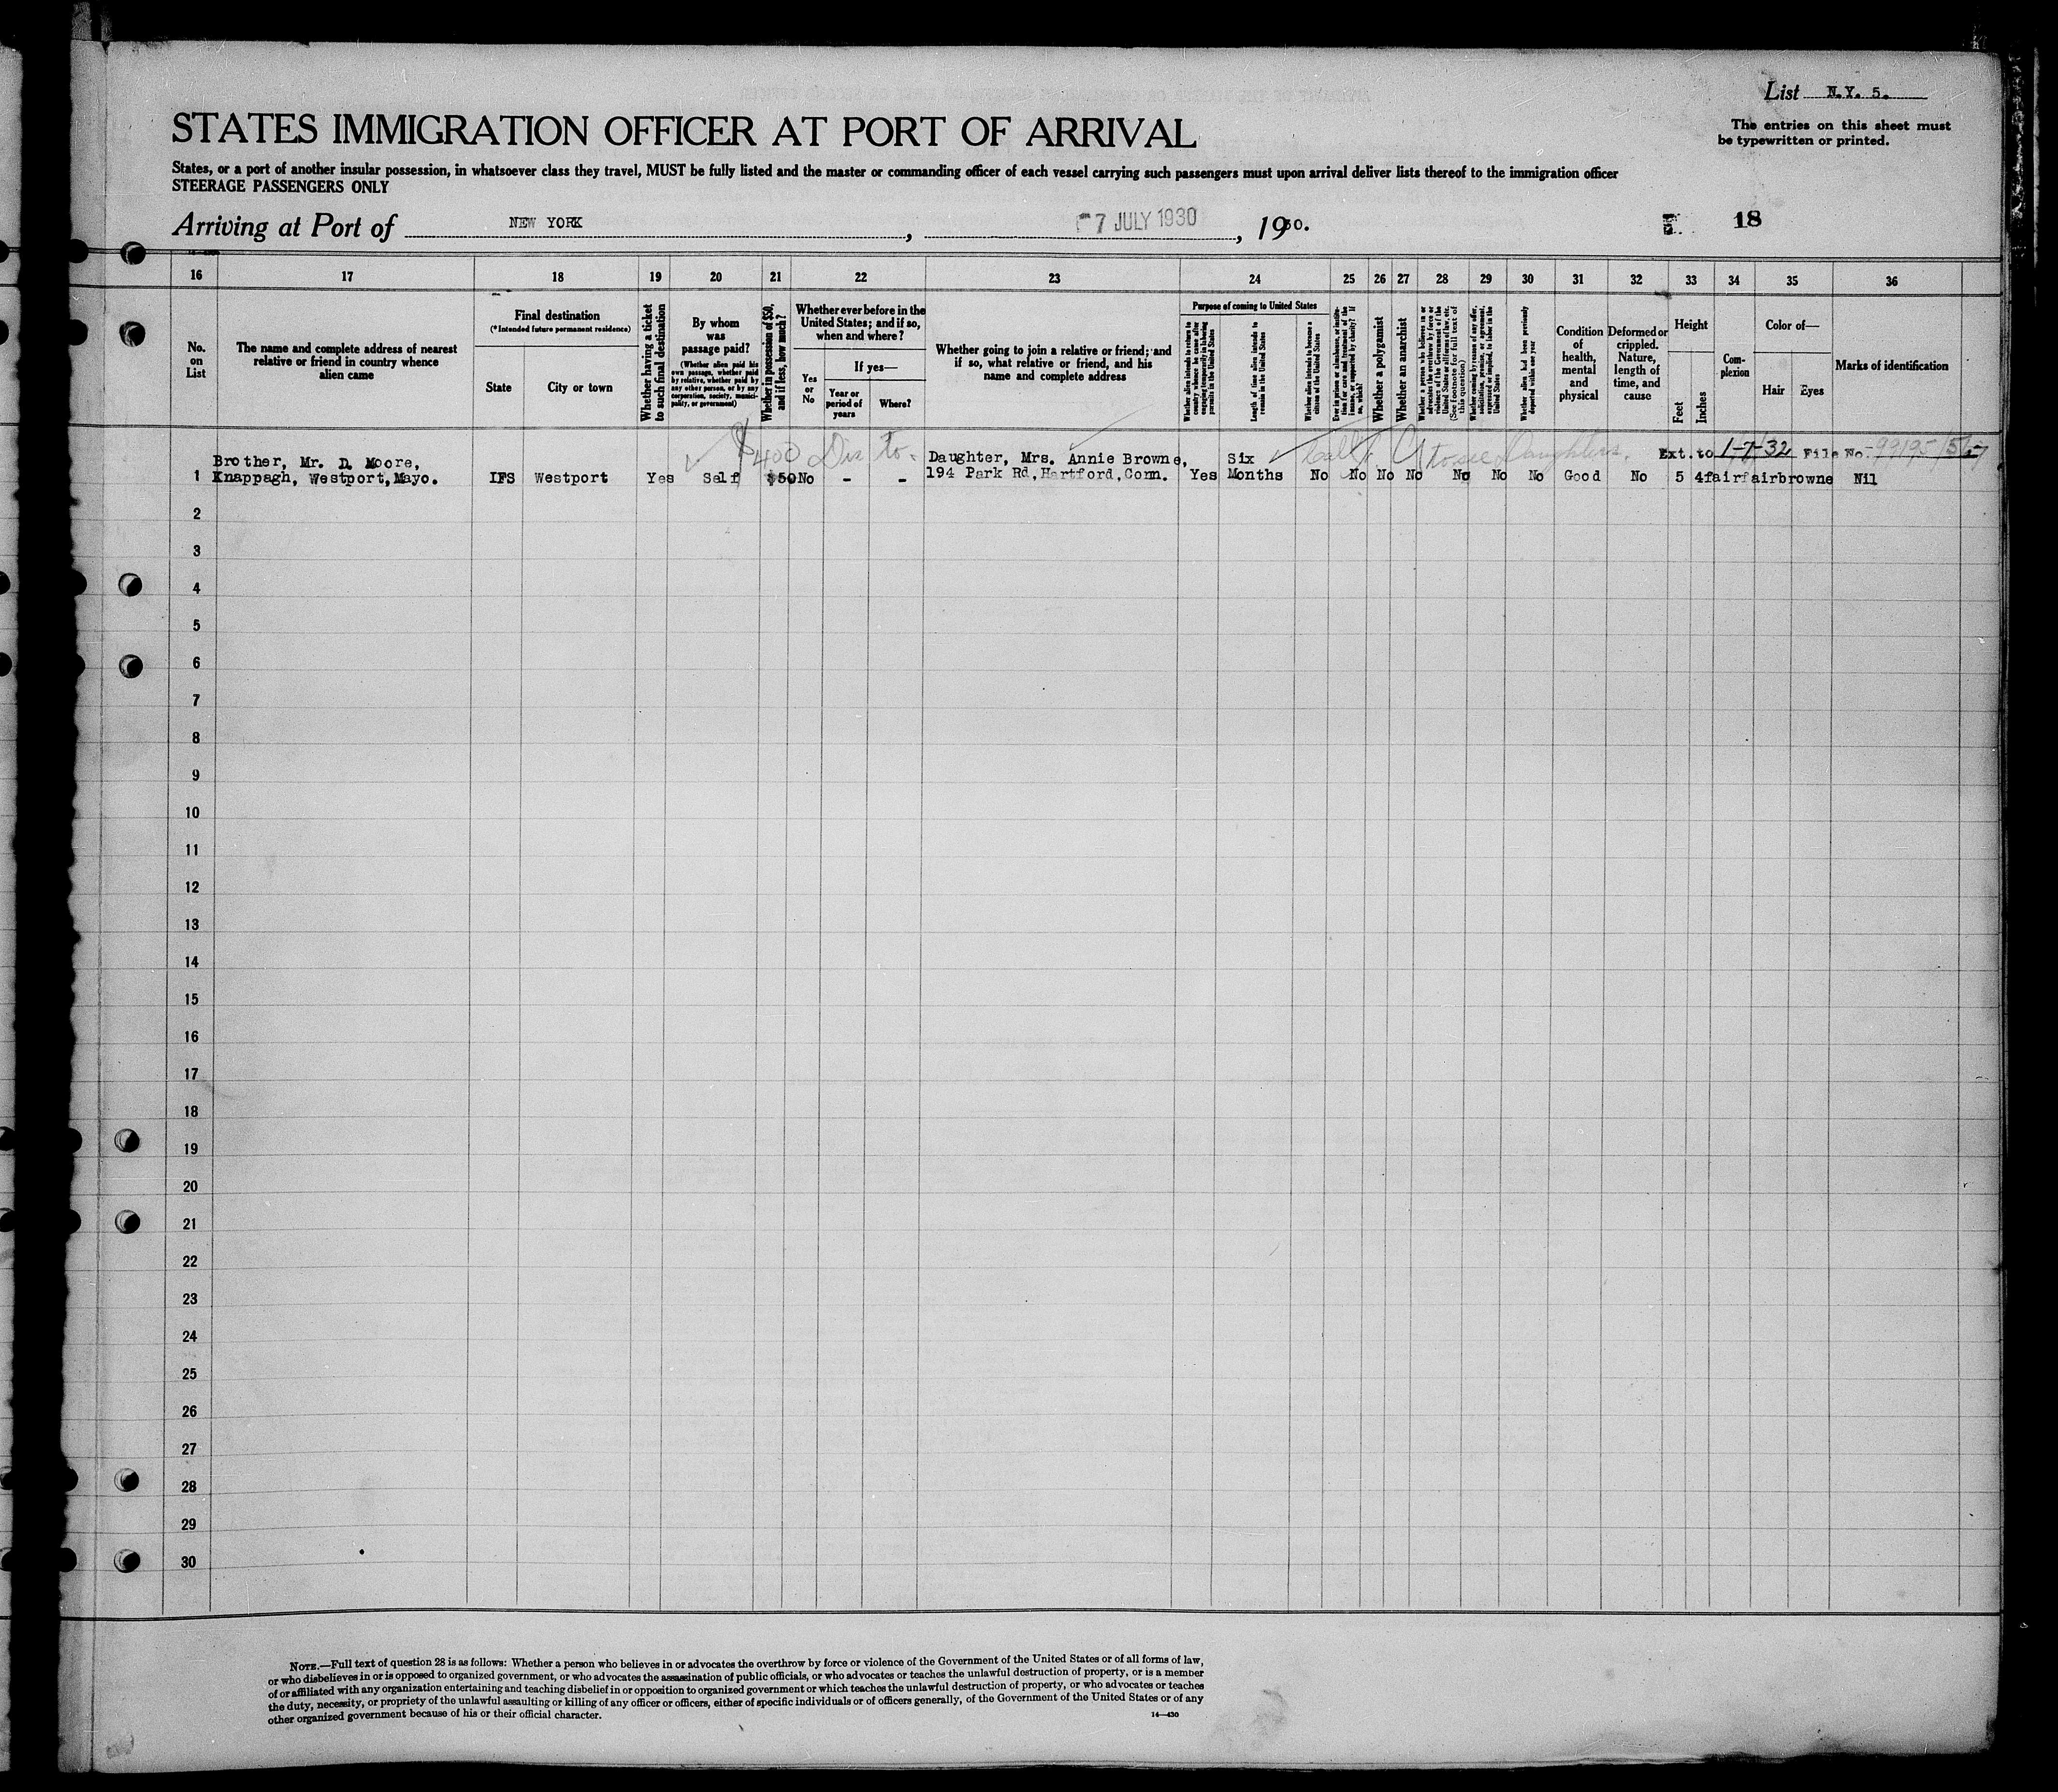 List N.Y. 5.
The entries on this sheet must
be typewritten or printed.
STATES IMMIGRATION OFFICER AT PORT OF ARRIVAL
States, or a port of another insular possession, in whatsoever class they travel, MUST be fully listed and the master or commanding officer of each vessel carrying such passengers must upon arrival deliver lists thereof to the immigration officer
STEERAGE PASSENGERS ONLY
Arriving at Port of NEW YORK, 7 JULY 1930, 1930.
18
16 17 18 19 20 21 22 23 24 25 26 27 28 29 30 31 32 33 34 35 36
No.
on
List
The name and complete address of nearest
relative or friend in country whence
alien came
Final destination
(*Intended future permanent residence)
State
City or town
Whether having a ticket
to such final destination
By whom
was
passage paid?
(Whether alien paid his
own passage, whether paid
by relative, whether paid by
any other person, or by any
corporation, society, munici-
pality, or government)
Whether in possession of $50,
and if less, how much?
Whether ever before in the
United States; and if so,
when and where?
Yes
or
No
If yes—
Year or
period of
years
Where?
Whether going to join a relative or friend; and
if so, what relative or friend, and his
name and complete address
Purpose of coming to United States
Whether alien intends to return to
country whence he came after
engaging temporarily in laboring
pursuits in the United States
Length of time alien intends to
remain in the United States
Whether alien intends to become a
citizen of the United States
Ever in prison or almshouse, or institu-
tion for care and treatment of the
insane, or supported by charity? If
so, which?
Whether a polygamist
Whether an anarchist
Whether a person who believes in or
advocates the overthrow by force or
violence of the Government of the
United States or all forms of law, etc.
(See footnote for full text of
this question)
Whether coming by reason of any offer,
solicitation, promise, or agreement,
expressed or implied, to labor in the
United States
Whether alien had been previously
deported within one year
Condition
of
health,
mental
and
physical
Deformed or
crippled.
Nature,
length of
time, and
cause
Height
Feet
Inches
Com-
plexion
Color of—
Hair
Eyes
Marks of identification
$400 Daughters. Ext. to 1-7-32 File No.
Brother, Mr. D. Moore, Daughter, Mrs. Annie Browne, Six
1 Knappagh, Westport, Mayo. IFS Westport Yes Self $50 No - - 194 Park Rd, Hartford, Conn. Yes Months No No No No No No No Good No 5 4 fair fair browne Nil
2
3
4
5
6
7
8
9
10
11
12
13
14
15
16
17
18
19
20
21
22
23
24
25
26
27
28
29
30
NOTE.—Full text of question 28 is as follows: Whether a person who believes in or advocates the overthrow by force or violence of the Government of the United States or of all forms of law,
or who disbelieves in or is opposed to organized government, or who advocates the assassination of public officials, or who advocates or teaches the unlawful destruction of property, or is a member
of or affiliated with any organization entertaining and teaching disbelief in or opposition to organized government or which teaches the unlawful destruction of property, or who advocates or teaches
the duty, necessity, or propriety of the unlawful assaulting or killing of any officer or officers, either of specific individuals or of officers generally, of the Government of the United States or of any
other organized government because of his or their official character.
14—430